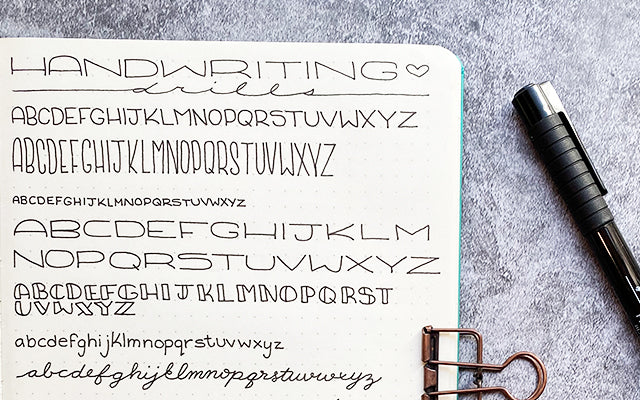 HANDWRITING♡
drills
ABCDEFGHIJKLMNOPQRSTUVWXYZ
ABCDEFGHIJKLMNOPQRSTUVWXYZ
ABCDEFGHIJKLMNOPQRSTUVWXYZ
ABCDEFGHIJKLM
NOPQRSTUVWXYZ
ABCDEFGHIJKLMNOPQRST
UVWXYZ
abcdefghijklmnopqrstuvwxyz
abcdefghijklmnopqrstuvwxyz